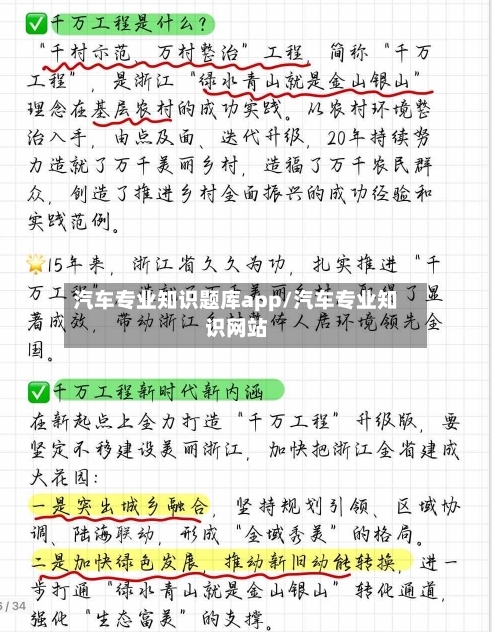 ✅千万工程是什么？
“千村示范、万村整治”工程，简称“千万
工程”，是浙江“绿水青山就是金山银山”
理念在基层农村的成功实践。从农村环境整
治入手，由点及面、迭代升级，20年持续努
力造就了万千美丽乡村，造福了万千农民群
众，创造了推进乡村全面振兴的成功经验和
实践范例。
🌟15年来，浙江省久久为功，扎实推进“千
万工程”
汽车专业知识题库app/汽车专业知
识网站
得了显
著成效，带动浙江乡村整体人居环境领先全
国。
✅千万工程新时代新内涵
在新起点上全力打造“千万工程”升级版，要
坚定不移建设美丽浙江，加快把浙江全省建成
大花园：
一是突出城乡融合，坚持规划引领、区域协
调、陆海联动，形成“全域秀美”的格局。
二是加快绿色发展，推动新旧动能转换，进一
步打通“绿水青山就是金山银山”转化通道，
强化“生态富美”的支撑。
/34